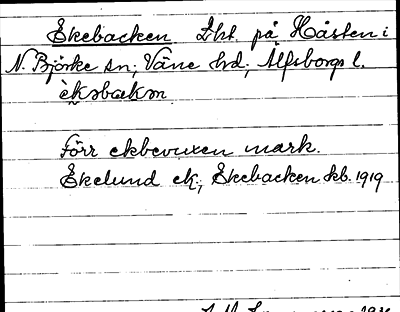 Ekebacken Lht. på Håsten i
N. Björke sn; Väne hd; Älfsborgs l.
èksbackən
Förr ekbevuxen mark.
Ekelund ek, Ekebacken skb. 1919